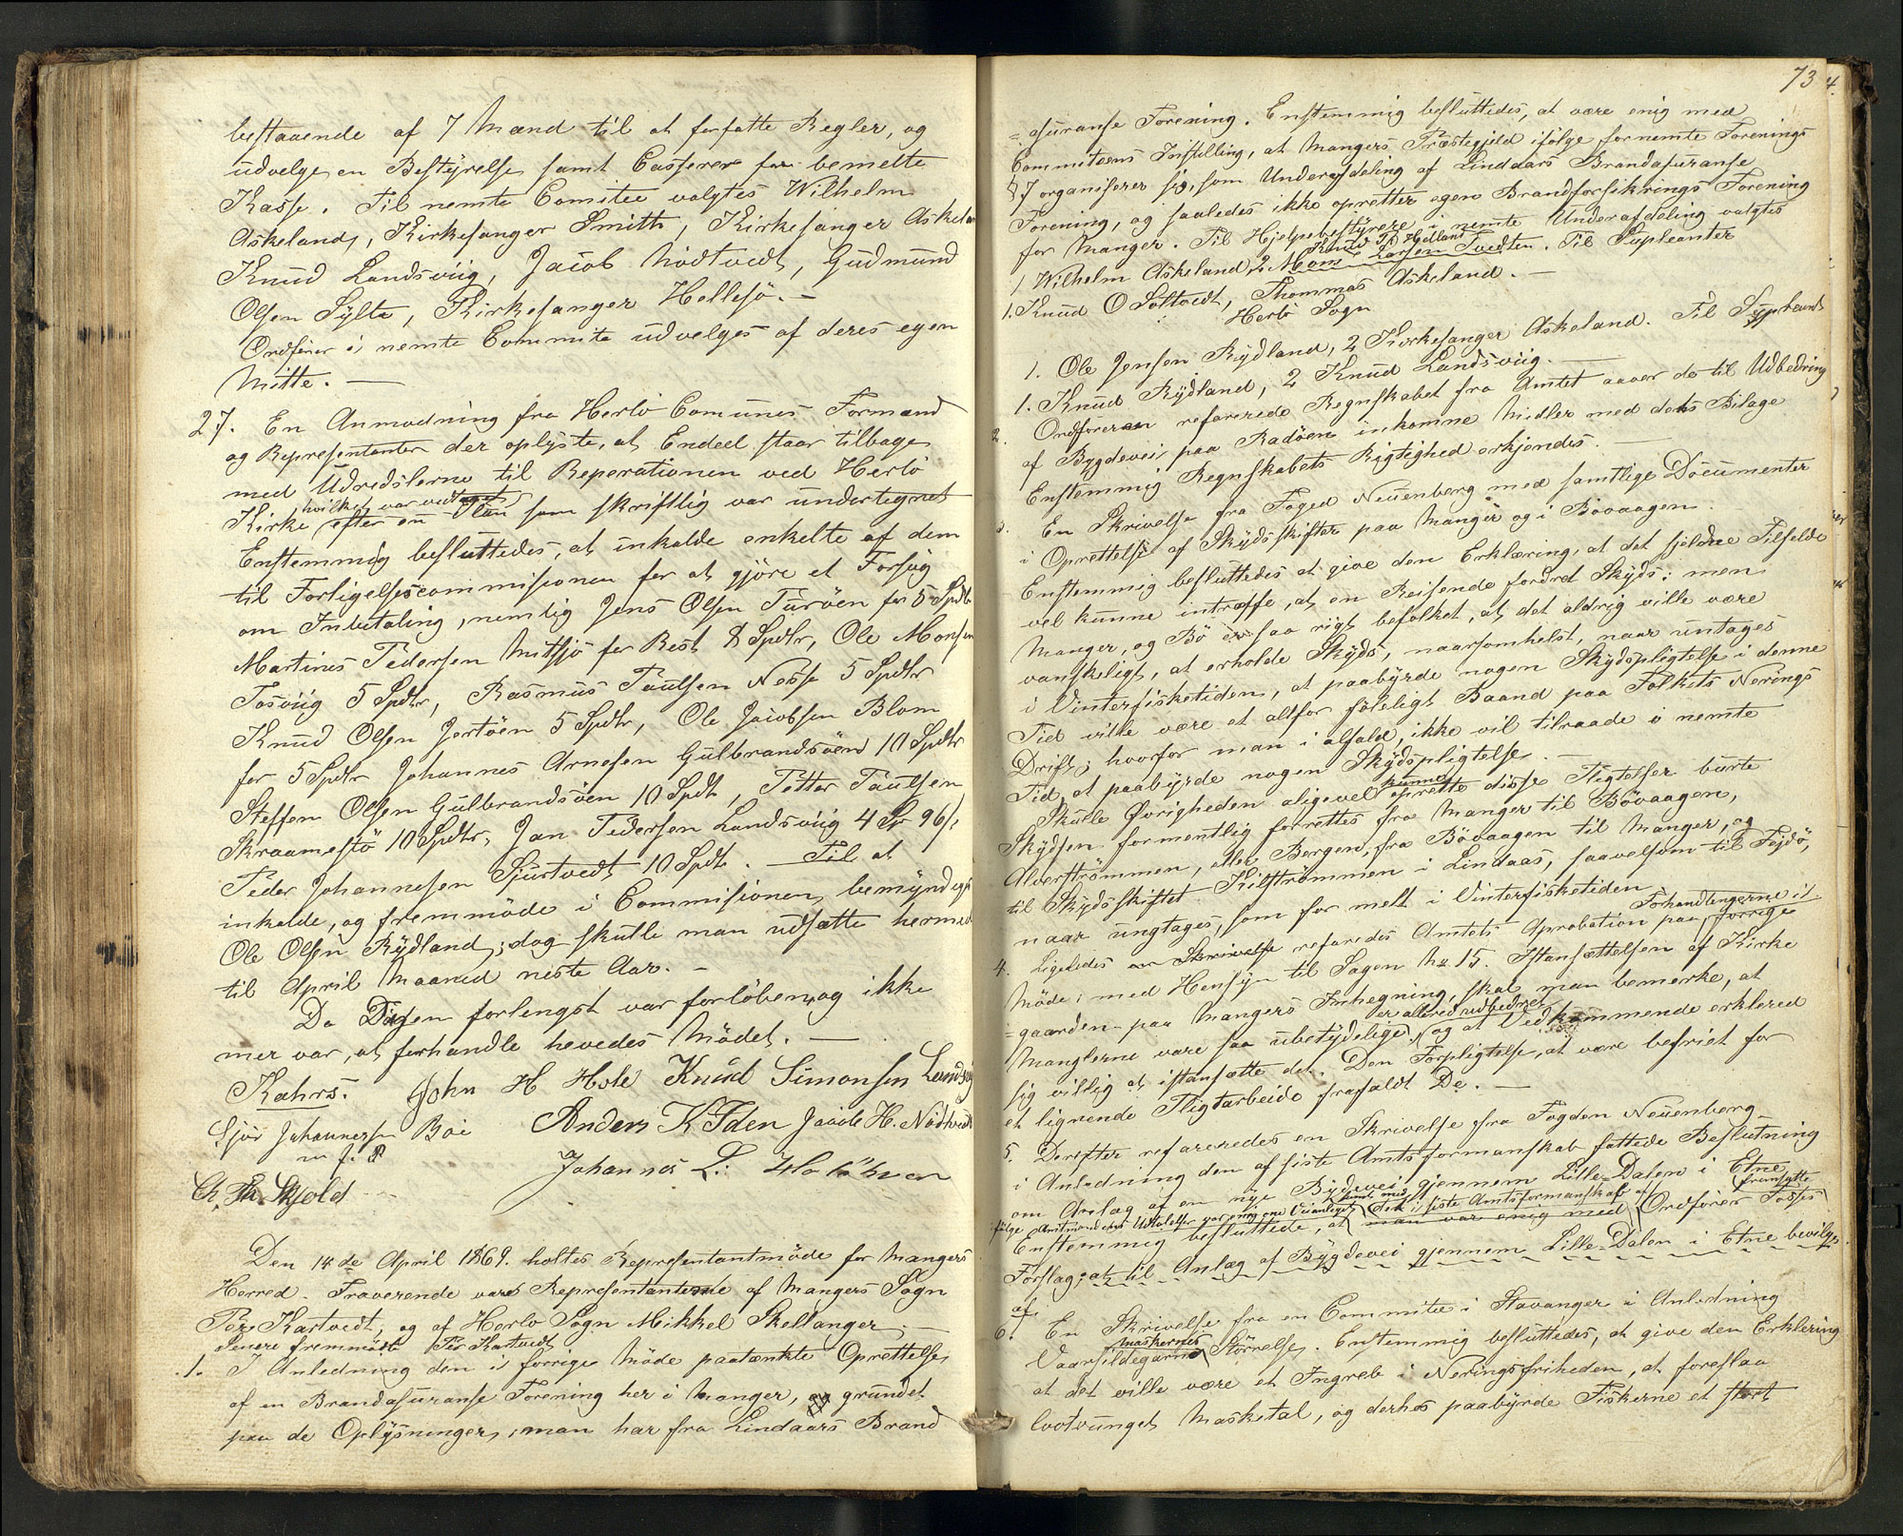 bestaaende af 7 Mænd til at forfatte Regler, og
udvelge en Bestyrelse samt Casserer for bemelte
Kasse. Til nemte Comitee valgtes Wilhelm
Askeland, Kirkesanger Smith, Kirkesanger Askeland
Knud Landsviig, Jacob Nødtvedt, Gudmund
Olsen Sylte, Kirkesanger Hellesø. —
Ordfører i nemte Committe udvelges af deres egen
Mitte. —
27. En Anmodning fra Herlö Comunes Formænd
og Representanter der oplyste, at Endeel staar tilbage
med Udredslerne til Reperationen ved Herlö
hvilket var vedtaget
Kirke efter en Plan som skriftlig var undertegnet
Enstemmig besluttedes, at inkalde enkelte af dem
til Forligelsescommisionen for at gjöre et Forsög
om Inbetaling, nemlig Jens Olsen Turöen for 5 Spdlr
Martines Pedersen Mittsjö for Rest 2 Spdlr, Ole Monsen
Tosviig 5 Spdlr, Rasmus Paulsen Nesse 5 Spdlr
Knud Olsen Jertöen 5 Spdlr, Ole Jacobsen Blom
for 5 Spdlr Johannes Arnesen Gulbrandsöen 10 Spdlr
Steffen Olsen Gulbrandsöen 10 Spdlr, Petter Paulsen
Skraamestö 10 Spdlr, Jan Pedersen Landsviig 4 Sp 96 s
Peder Johannesen Sjurtvedt 10 Spdlr. — Til at
inkalde, og fremmöde i Commisionen, bemyndiges
Ole Olsen Rydland; dog skulle man udsætte hermed
til April Maaned neste Aar. —
Da Dagen forlengst var forlöben, og ikke
mer var, at forhandle hevedes Mödet. —
Kahrs. John H Hole Knud Simonsen Landsvig
Sjur Johannessen Böe Anders K Iden Jacob H. Nödtvedt
m f. P
Johannes L:
Ch. Th. Skjold
Den 14de April 1869. holtes Representantmöde for Mangers
Herred. Fraverende vare Representanterne af Mangers Sogn
Per Kartvedt, og af Herlö Sogn Mikkel Skellanger. —
Senere fremmödt Per Kartvedt
1. I Anledning den i forrige Möde paatænkte Oprettelse
af en Brandasuranse Forening her i Manger, og grundet
paa de Oplysninger, man har fra Lindaars Brand
73 4.
=asuranse Forening. Enstemmig besluttedes, at være enig med
Commiteens Instilling, at Mangers Præstegjeld ifölge fornemte Forenings
§7 organiserer sig, som Underafdeling af Lindaars Brandasuranse
Forening, og saaledes ikke opretter egen Brandforsikrings Forening
for Manger. Til Hjelpebestyrere i nemte Underafdeling valgtes
Knud P. Hjelland
1 Wilhelm Askeland, 2 Mons Larsen Tvedten. Til Supleanter
1. Knud O Soltvedt, Thommas Askeland. —
Herlö Sogn
1. Ole Jensen Rydland, 2 Kirkesanger Askeland. Til Suppleanter
1. Knud Rydland, 2 Knud Landsviig. —
2. Ordföreren refererede Regnskabet fra Amtet aaver de til Udbedring
af Bygdevei paa Radöen inkomne Midler med dets Bilage
Enstemmig Regnskabets Rigtighed erkjendes. —
3. En Skrivelse fra Foged Neuenberg med samtlige Documenter
i Oprettelse af Skydsskifter paa Manger og i Bövaagen.
Enstemmig besluttedes at give den Erklæring, at det sjeldne Tilfelde
vel kunne intræffe, at en Reisende fordret Skyds; men
Manger, og Bö er saa rigt befolket, at det aldrig ville være
vanskeligt, at erholde Skyds, naarsomhelst, naar untages
i Vinterfisketiden, at paabyrde nogen Skydspligtelse i denne
Tid ville være et altfor föleligt Baand paa Folkets Nerings
Drift; hvorfor man i alfald, ikke vil tilraade i nemte
Tid, at paabyrde nogen Skydspligtelse. —
Skulle Övrigheden aligevel kunne oprette disse Pligtelser burte
Skydsen formentlig forrettes fra Manger til Bövaagen,
Alverströmmen, eller Bergen, fra Bövaagen til Manger, og
til Skydsskiftet Kilströmmen i Lindaas, saavelsom til Fejdö,
naar ungtages, som for melt i Vinterfisketiden
Forhandlingerne i
4. Ligeledes en Skrivelse referedes Amtets Aprobation paa forrige
Möde; med Hensyn til Sagen No 15. Istansættelsen af Kirke
=gaarden paa Mangers Inhegning, skal man bemerke, at
er allered udbedret
Manglerne vare saa ubetydelige, og at Vedkommende erklered
sig villig at istansætte det. Den Forpligtelse, at være befriet for
et lignende Pligtarbeide frafaldt De. —
5. Derefter refereredes en Skrivelse fra Fogden Neuenberg
i Anledning den af siste Amtsformanskab fattede Beslutning
om Anlæg af en nye Bygdevei gjennem Lille-Dalen i Etne
ifölge Amtmandens Udtalelse var enig om Veianleget samt med det i siste Amtsformanskab af fremsatte
Enstemmig besluttede, at man var enig med Ordförer Tosses
Forslag; at til Anlæg af Bygdevei gjennem Lille-Dalen i Etne bevilges
af
6. En Skrivelse fra en Committee i Stavanger i Anledning
maskernes
Vaarsildegarns Störrelse. Enstemmig besluttedes, at give den Erklering
at det ville være et Ingreb i Neringsfriheden, at foreslaa
lovtvunget Masketal, og derhos paabyrde Fiskerne et stort